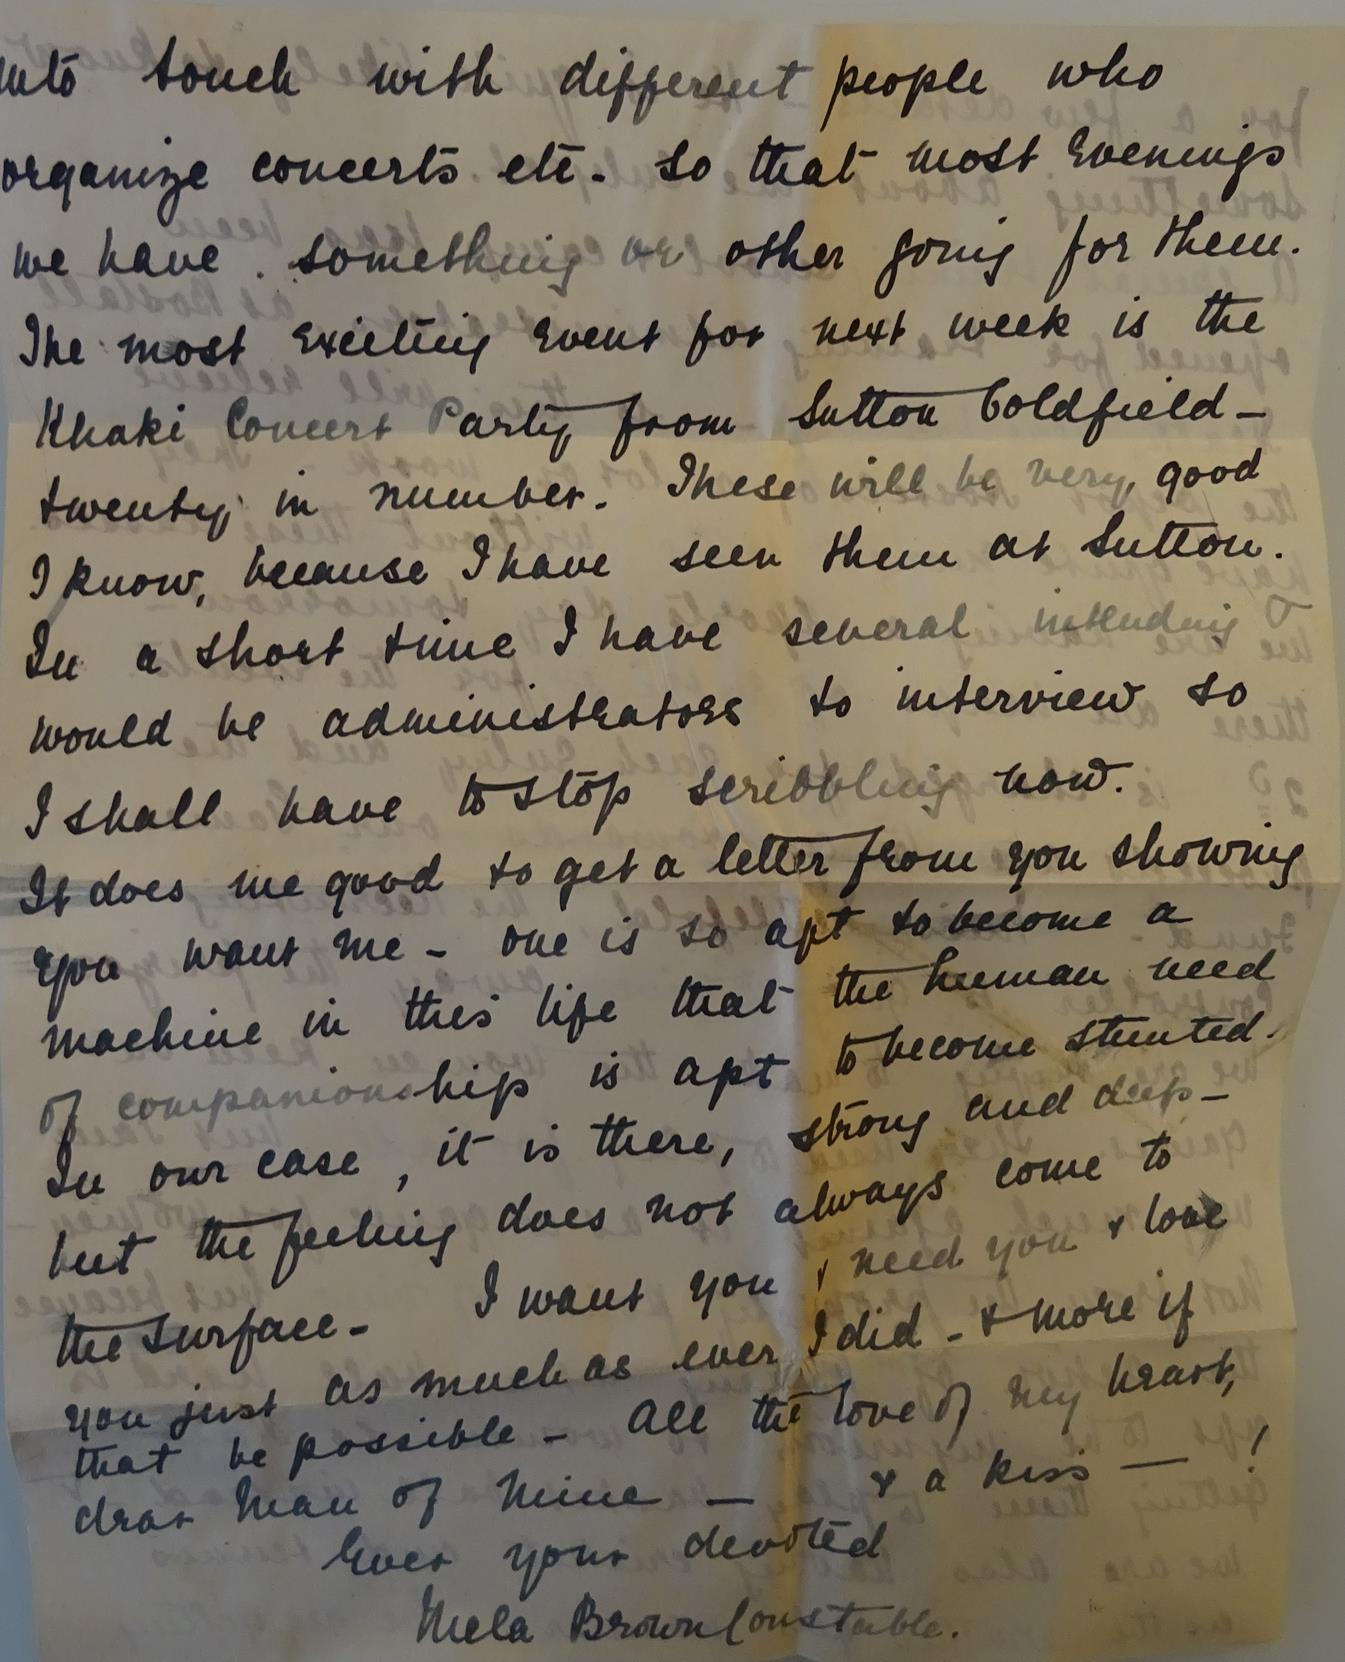 into touch with different people who
organize concerts etc. so that most Evenings
we have something or other going for them.
The most Exciting Event for next week is the
Khaki Concert Party from Sutton Coldfield -
twenty in number. These will be very good
I know, because I have seen them at Sutton.
In a short time I have several intending
would be administrators to interview so
I shall have to stop scribbling now.
It does me good to get a letter from you showing
you want me - one is so apt to become a
machine in this life that the human need
of companionship is apt to become stunted.
In our case, it is there, strong and deep -
but the feeling does not always come to
the surface - I want you & need you & love
you just as much as ever I did - & more if
that be possible - All the love of my heart,
dear Man of Mine - & a kiss - !
Ever your devoted
Mela Brown Constable.